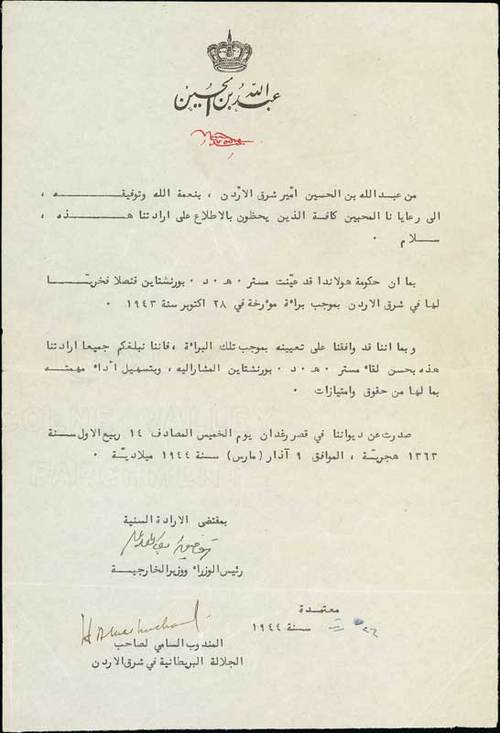 عبد الله بن الحسين
من عبد الله بن الحسين امير شرق الاردن ، بنعمة الله وتوفيقـــــــه ،
الى رعايا نا المحبين كافة الذين يحظون بالاطلاع على ارادتنا هـــــذه ،
ســلام ٠
بما ان حكومة هولاندا قد عيّنت مستر ٠ هـ ٠ د ٠ بورنشتاين قنصلا فخريّــــا
لها في شرق الاردن بموجب براءة مؤرخة في ٢٨ اكتوبر سنة ١٩٤٣ ٠
وبما اننا قد وافقنا على تعيينه بموجب تلك البراءة ، فاننا نبلغكم جميعا ارادتنا
هذه بحسن لقاء مستر ٠ هـ ٠ د ٠ بورنشتاين المشاراليه ، وبتسهيل اداء مهمتـــه
بما لها من حقوق وامتيازات ٠
صدرت عن ديواننا في قصر رغدان يوم الخميس المصادف ١٤ ربيع الاول سنة
١٣٦٣ هجريّة ، الموافق ٩ آذار (مارس) سنة ١٩٤٤ ميلاديّة ٠
بمقتضى الارادة السنية
رئيس الوزراء ووزير الخارجيـــة
معتمدة
سنة ١٩٤٤
المندوب السامي لصاحب
الجلالة البريطانية في شرق الاردن